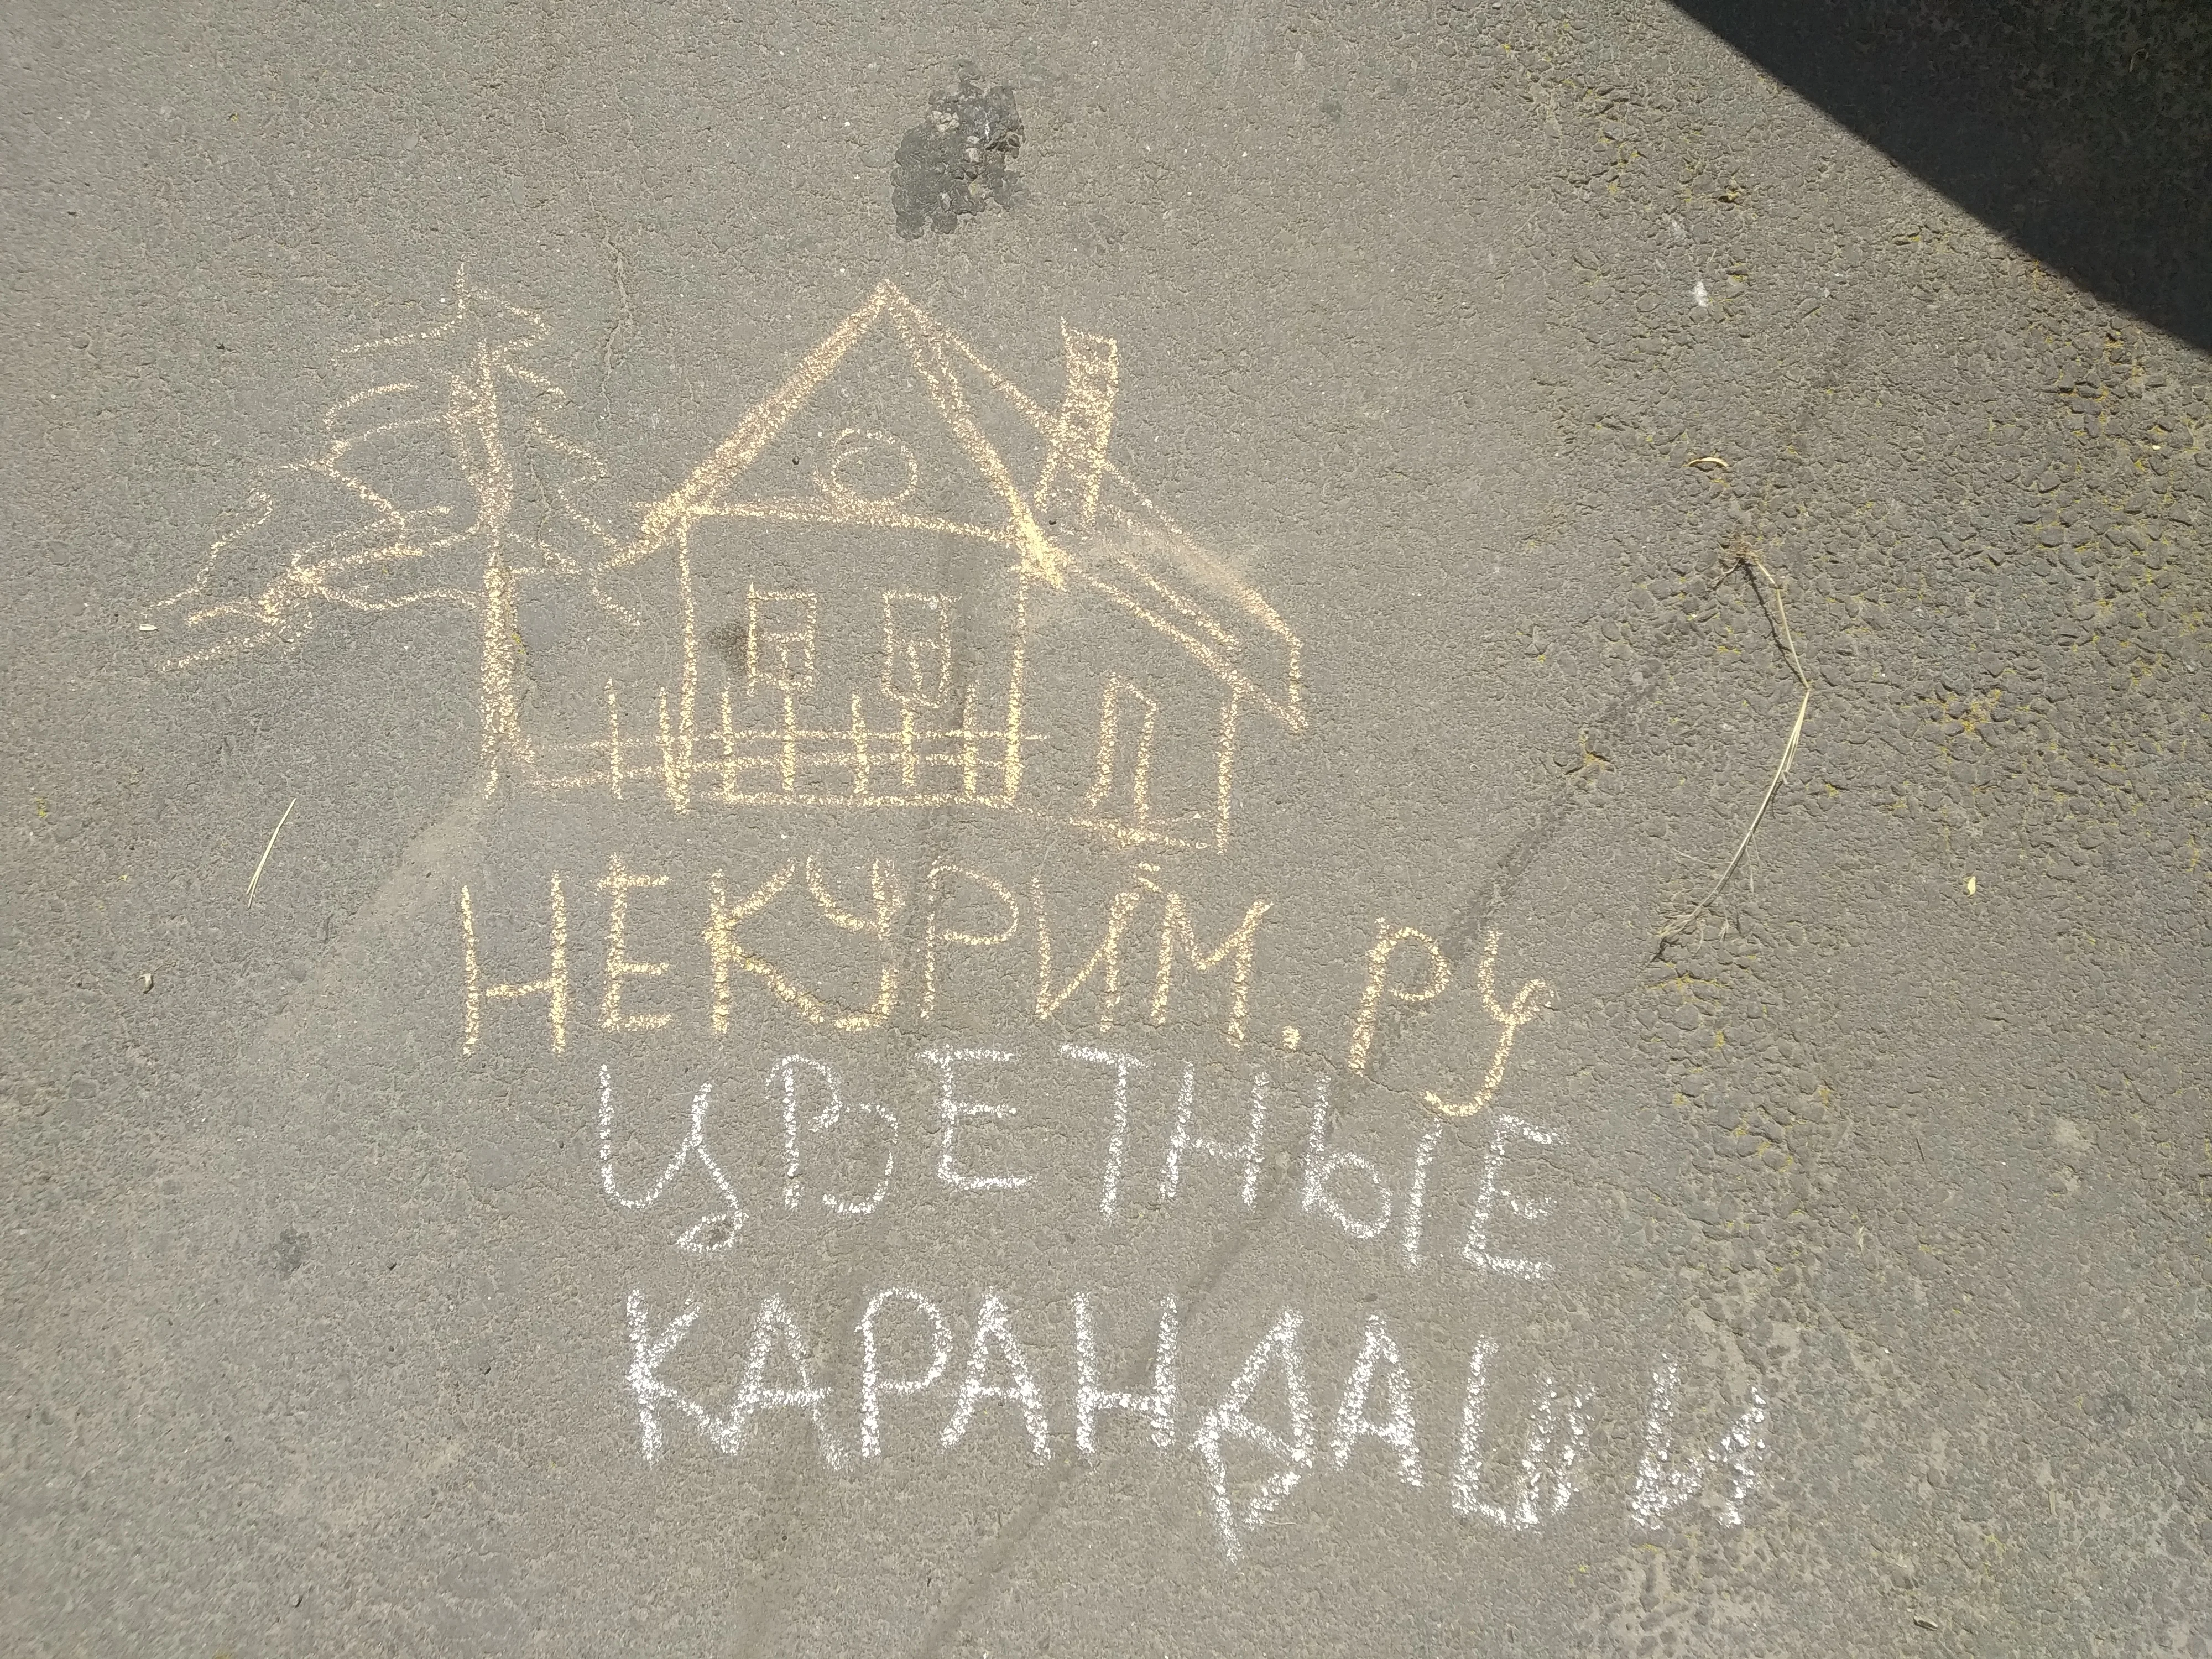 НЕКУРИМ.РУ
ЦВЕТНЫЕ
КАРАНДАШИ